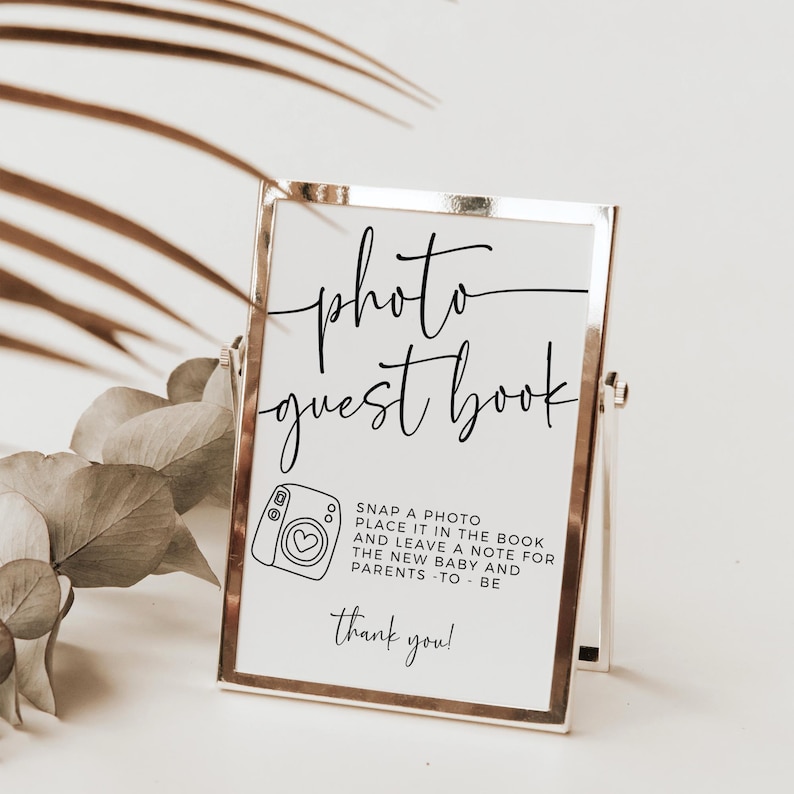 photo
guest book
SNAP A PHOTO
PLACE IT IN THE BOOK
AND LEAVE A NOTE FOR
THE NEW BABY AND
PARENTS -TO - BE
thank you!